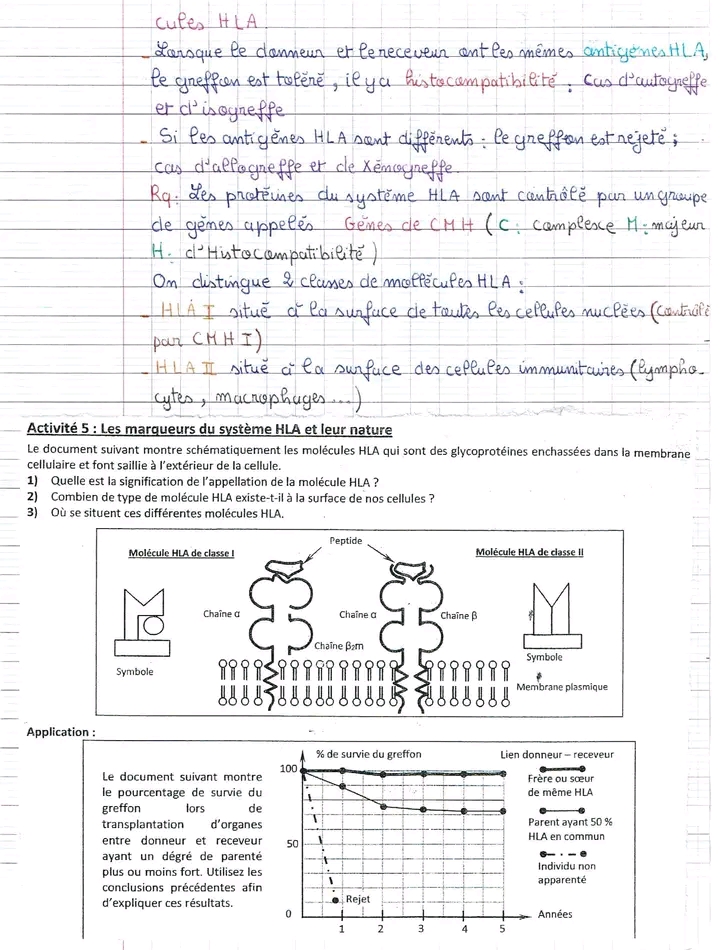 cules HLA
- Lorsque le donneur et le receveur ont les mêmes antigènes HLA,
le greffon est toléré, il y a histocompatibilité : Cas d'autogreffe
et d'isogreffe
- Si les antigènes HLA sont différents : le greffon est rejeté ;
cas d'allogreffe et de Xénogreffe.
Rq : Les protéines du système HLA sont contrôlé par un groupe
de gènes appelés Gènes de CMH (C : complexe M : majeur
H : d'Histocompatibilité)
On distingue 2 classes de mollécules HLA :
- HLA I situé à la surface de toutes les cellules nuclées (Contrôlé
par CMH I)
- HLA II situé à la surface des cellules immunitaires (lympho-
cytes, macrophages ...)
Activité 5 : Les marqueurs du système HLA et leur nature
Le document suivant montre schématiquement les molécules HLA qui sont des glycoprotéines enchassées dans la membrane
cellulaire et font saillie à l'extérieur de la cellule.
1) Quelle est la signification de l'appellation de la molécule HLA ?
2) Combien de type de molécule HLA existe-t-il à la surface de nos cellules ?
3) Où se situent ces différentes molécules HLA.
Peptide
Molécule HLA de classe I
Molécule HLA de classe II
Chaîne α
Chaîne α
Chaîne β
Chaîne β₂m
Symbole
Symbole
Membrane plasmique
Application :
Le document suivant montre
le pourcentage de survie du
greffon lors de
transplantation d'organes
entre donneur et receveur
ayant un dégré de parenté
plus ou moins fort. Utilisez les
conclusions précédentes afin
d'expliquer ces résultats.
% de survie du greffon
100
50
0
Rejet
1 2 3 4 5
Années
Lien donneur – receveur
Frère ou sœur
de même HLA
Parent ayant 50 %
HLA en commun
Individu non
apparenté